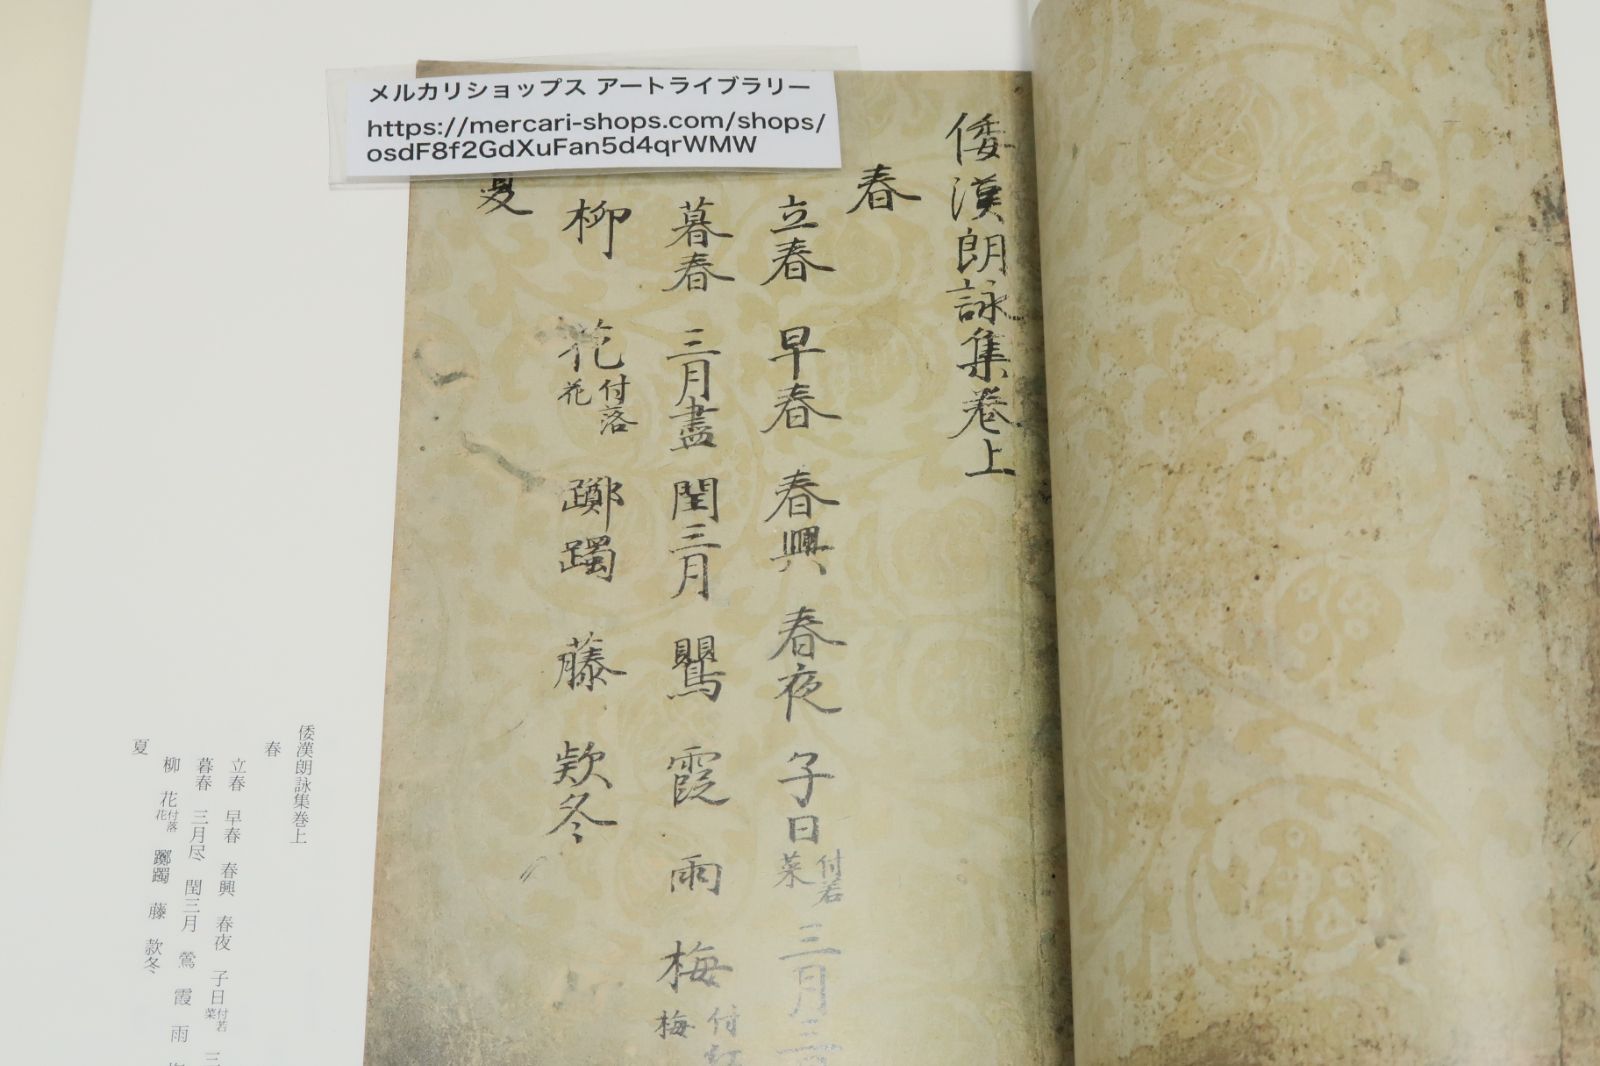 メルカリショップス アートライブラリー
https://mercari-shops.com/shops/
osdF8f2GdXuFan5d4qrWMW
倭漢朗詠集卷上
春
立春 早春 春興 春夜 子日付若菜 三月三
暮春 三月盡 閏三月 鸎 霞 雨 梅付紅梅
柳 花付落花 躑躅 藤 欵冬
夏
倭漢朗詠集巻上
春
立春 早春 春興 春夜 子日付若菜 三
暮春 三月尽 閏三月 鶯 霞 雨
柳 花付落花 躑躅 藤 款冬
夏